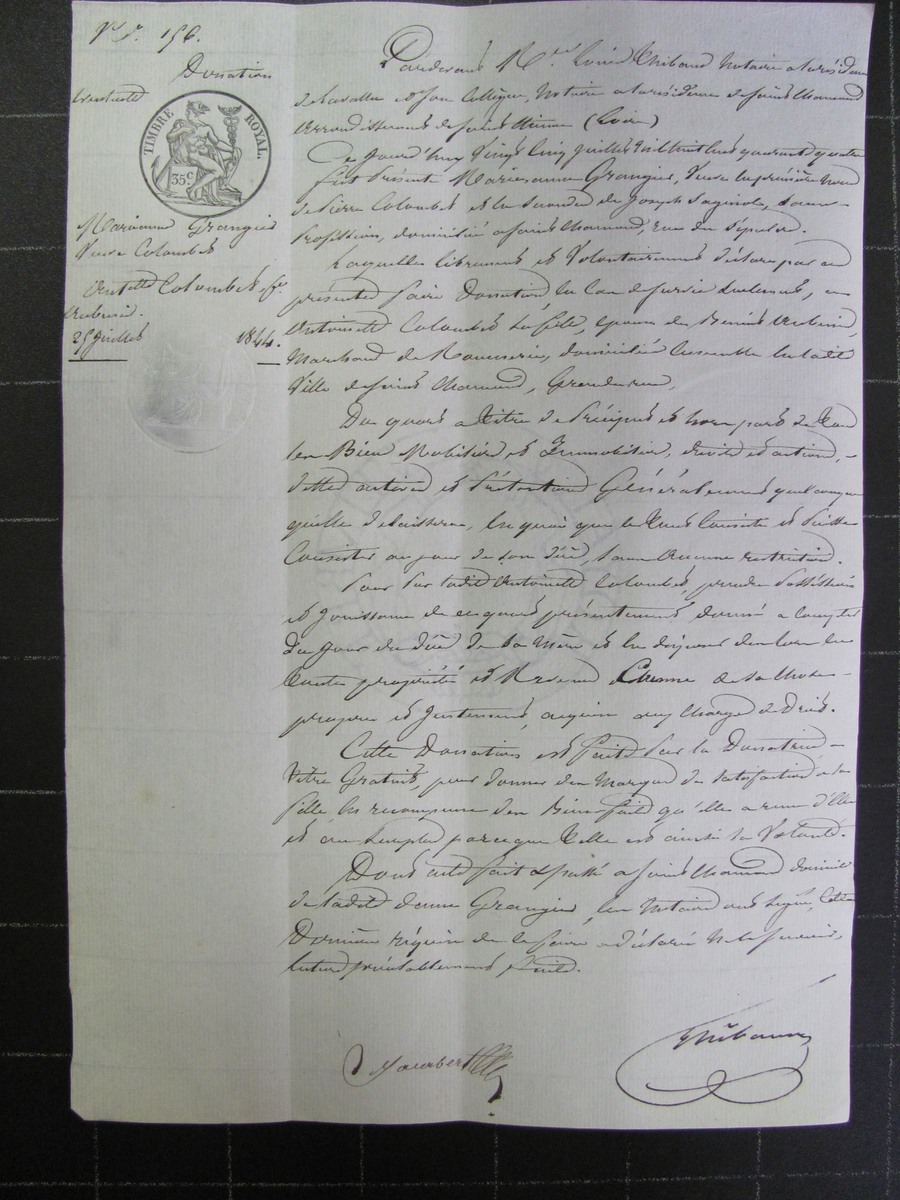 N° 156.
Donation
TIMBRE ROYAL.
35 c
Marianne Grangier
Veuve Colombet
Antette Colombet fe
Aubusier.
25 Juillet 1844.
Pardevant Me Louis Thibaud Notaire à la résidence
de Lavalla et son Collègue, Notaire à la résidence de Saint Chamond
arrondissement de Saint Etienne (Loire)
Ce jourd'huy Vingt Cinq Juillet Mil huit cent quarante quatre
fut Présente Marieanne Grangier, Veuve en première noces
de Pierre Colombet et en seconde de Joseph, sans
Profession, domiciliée à Saint Chamond, rue du Sépulcre.
Laquelle librement et Volontairement déclare par ces
présentes faire Donation, en Cas de survie seulement, à
Antoinette Colombet sa fille, épouse de Benoit
Marchand de Rouennerie, domiciliés ensemble en ladite
Ville de Saint Chamond, Grande rue,
De quart à titre de Préciput et hors part de tous
les Biens Mobiliers et Immobiliers, droits et actions,
dettes actives et Prétentions Généralement quelconques
qu'elle délaissera, en quoi que le tout Consiste et Puisse
Consister au jour de son décès, sans Aucune restriction.
Pour Par ladite Antoinette Colombet, prendre Possession
et Jouissance de ce quart présentement donné à compter
du jour du décès de sa Mère et en disposer dès lors en
toute propriété et Revenu Comme de sa Chose
propre et Justement acquise aux Charges de Droit.
Cette Donation est faite Par la Donatrice
à titre Gratuit, pour donner des Marques de satisfaction à sa
fille, en récompense des Bienfaits qu'elle a reçus d'elle
et au surplus parceque telle est ainsi sa Volonté.
Dont acte fait & passé à Saint Chamond domicile
de ladite dame Grangier, les Notaires ont signé, Cette
Dernière requise de le faire a déclaré Ne le savoir,
lecture préalablement faite.
Jaubert
Thibaud